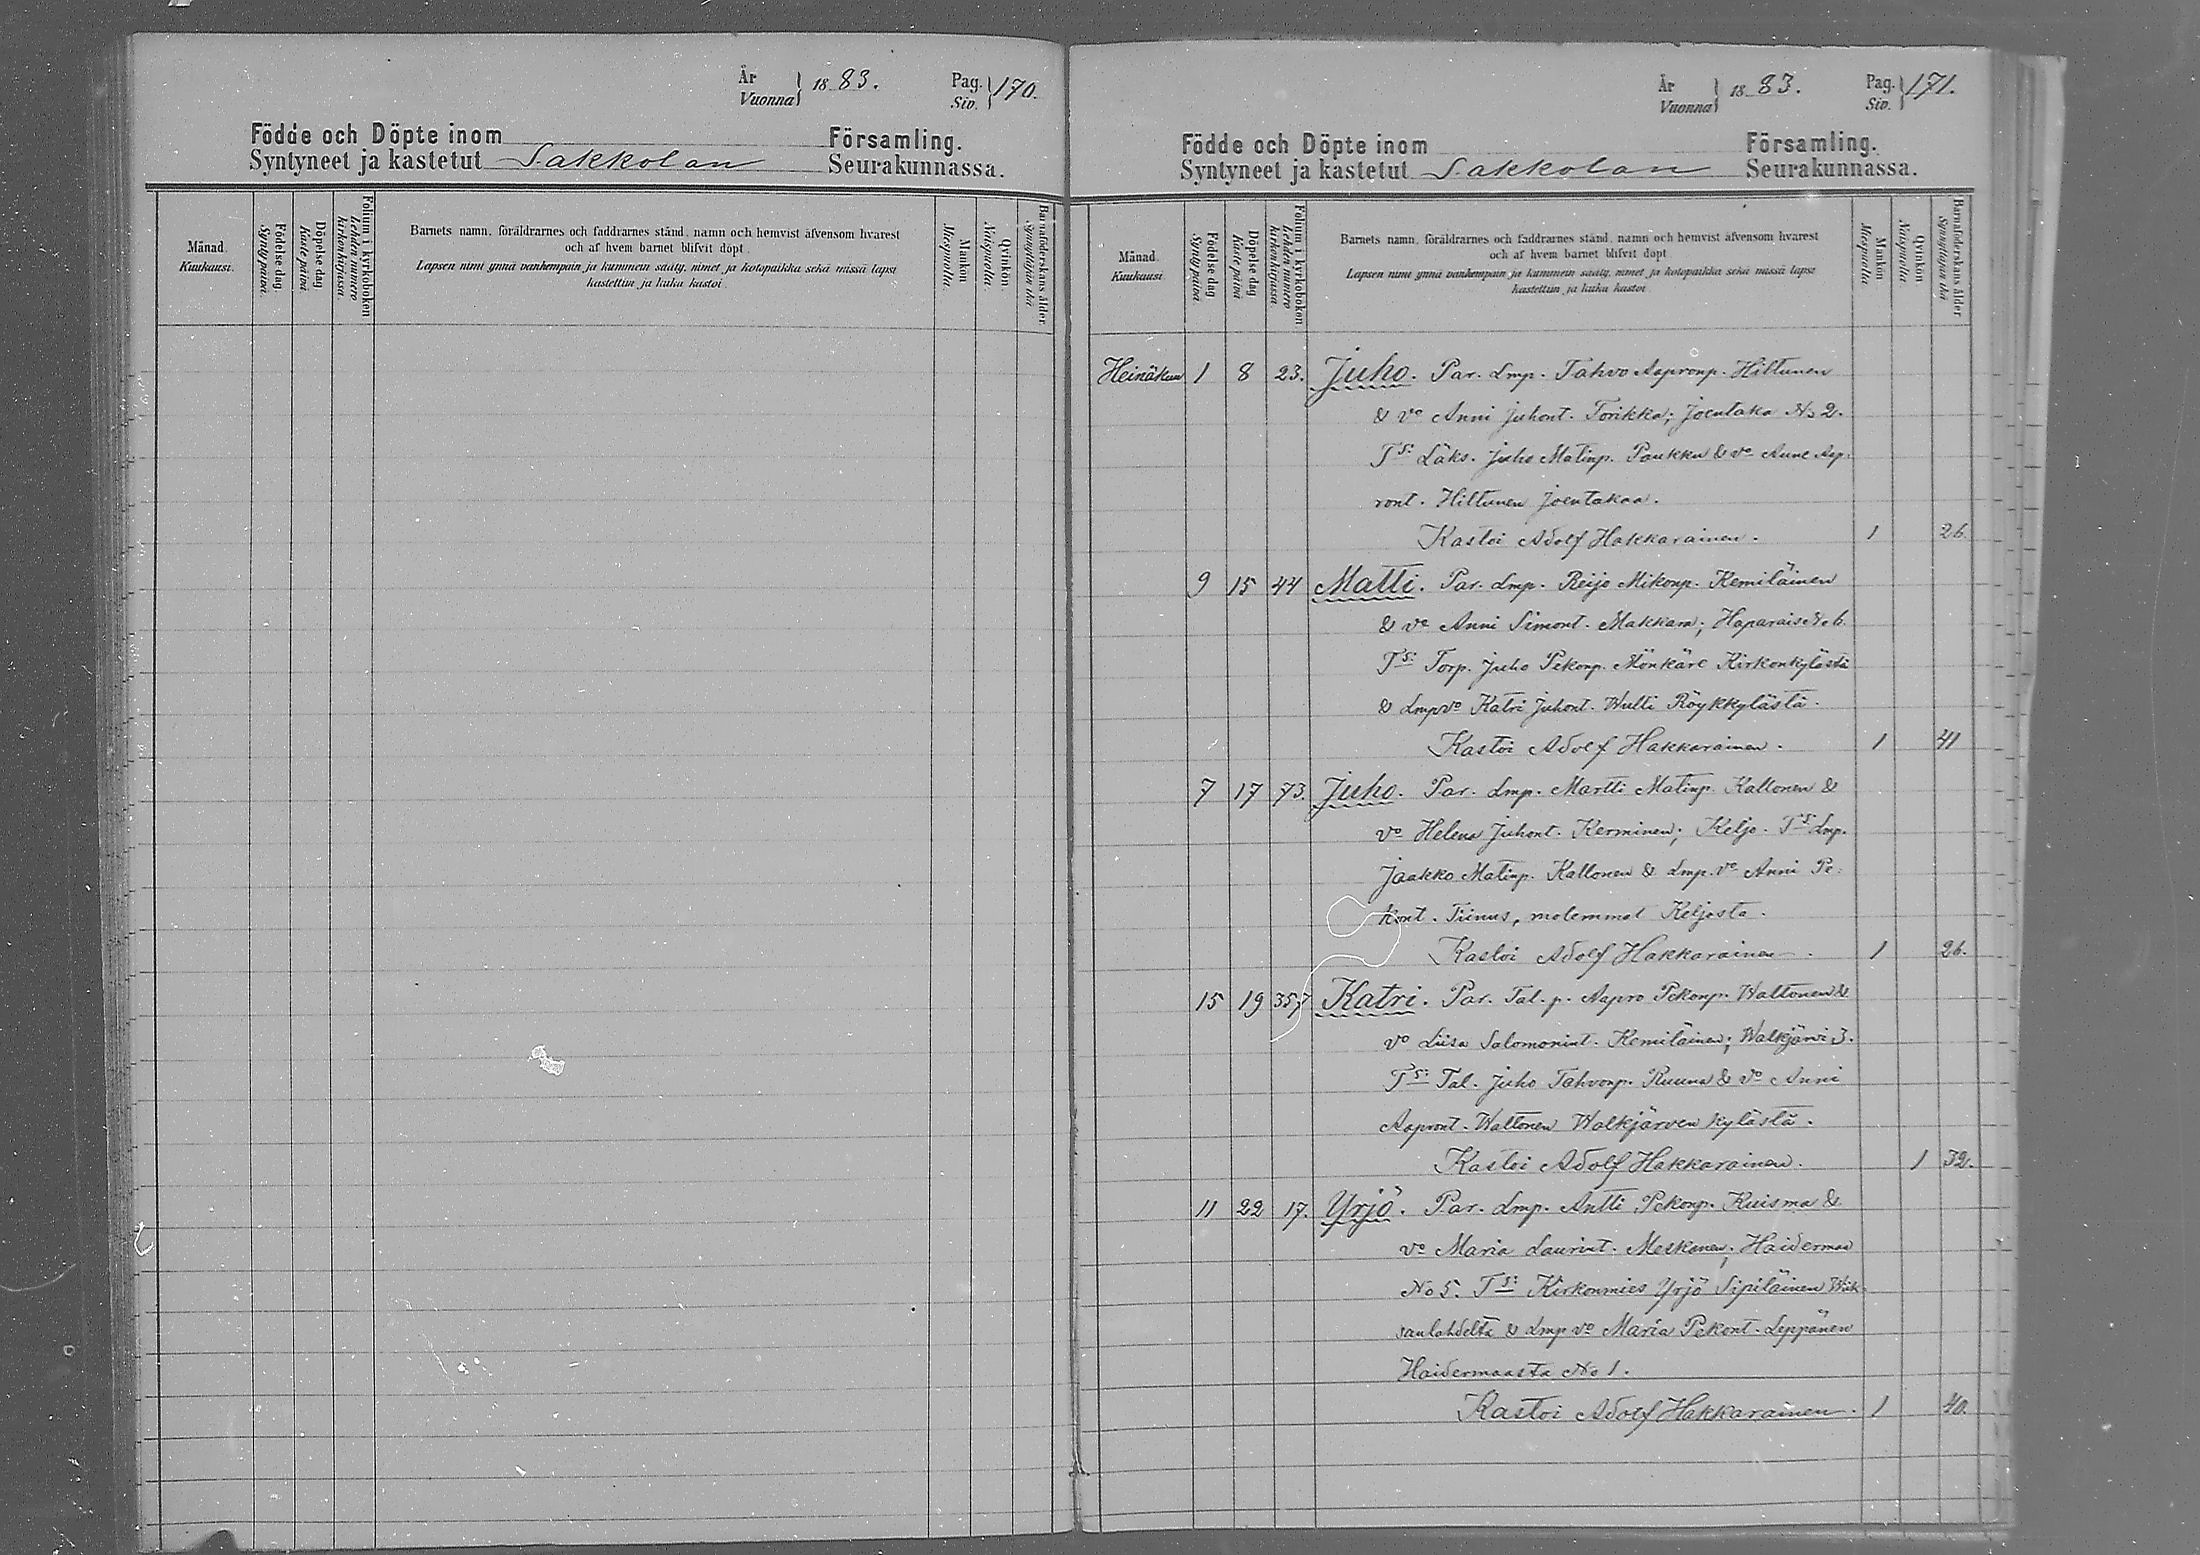 År Vuonna 1883. Pag. Siv. 170.
Födde och Döpte inom Församling.
Syntyneet ja kastetut Sakkolan Seurakunnassa.
Månad. Kuukausi.
Födelse dag. Synty päivä.
Döpelse dag Kaste päivä.
Folium i kyrkoboken Lehden numero kirkonkirjassa.
Barnets namn, föräldrarnes och faddrarnes stånd, namn och hemvist äfvensom hvarest
och af hvem barnet blifvit döpt.
Lapsen nimi ynnä vanhempain ja kummein sääty, nimet ja kotopaikka sekä missä lapsi
kastettiin ja kuka kastoi.
Mankön Miespuolia.
Qvinkön Naispuolia.
Barnaföderskans ålder. Synnyttäjän ikä
År Vuonna 1883. Pag. Siv. 171.
Födde och Döpte inom Församling.
Syntyneet ja kastetut Sakkolan Seurakunnassa.
Månad. Kuukausi
Födelse dag Synty päivä.
Döpelse dag Kaste päivä.
Folium i kyrkoboken Lehden numero kirkonkirjassa
Barnets namn, föräldrarnes och faddrarnes stånd, namn och hemvist äfvensom hvarest
och af hvem barnet blifvit döpt
Lapsen nimi ynnä vanhempain ja kummein sääty, nimet ja kotopaikka sekä missä lapsi
kastettiin ja kuka kastoi.
Mankön Miespuolia
Qvinkön Naispuolia
Barnaföderskans ålder Synnyttäjän ikä
Heinäkuu 1 8 23. Juho. Par. Lmp. Tahvo Aapronp. Hiltunen
& vo Anni Juhont. Torikka; Joentaka No 2.
Ts: Läks. Juho Matinp. Paukku & vo Anne Aap-
ront. Hiltunen Joentakaa.
Kastoi Adolf Hakkarainen. 1 26.
9 15 44 Matti. Par. Lmp. Reijo Mikonp. Kemiläinen
& vo Anni Simont. Makkara; Haparais No 6.
Ts: Torp. Juho Pekonp. Mönkäre Kirkonkylästä
& Lmpvo Katri Juhont. Wulli Röykkylästä.
Kastoi Adolf Hakkarainen. 1 41
7 17 73. Juho. Par. Lmp. Martti Matinp. Kallonen &
vo Helena Juhont. Kerminen; Keljo. Ts: Lmp.
Jaakko Matinp. Kallonen & Lmp. vo Anni Pe-
kont. Tiinus, molemmat Keljosta.
Kastoi Adolf Hakkarainen. 1 26.
15 19 357 Katri. Par. Tal. p. Aapro Pekonp. Waltonen &
vo Liisa Salomonint. Kemiläinen; Walkjärvi 3.
Ts: Tal. Juho Tahvonp. Ruuna & vo Anni
Aapront. Waltonen Walkjärven kylästä.
Kastoi Adolf Hakkarainen. 1 32.
11 22 17. Yrjö. Par. Lmp. Antti Pekonp. Kuisma &
vo Maria Laurint. Meskanen; Haidermaa
No 5. Ts: Kirkonmies Yrjö Sipiläinen Wiik-
sanlahdelta & Lmp vo Maria Pekont. Leppänen
Haidermaasta No 1.
Kastoi Adolf Hakkarainen. 1 40.